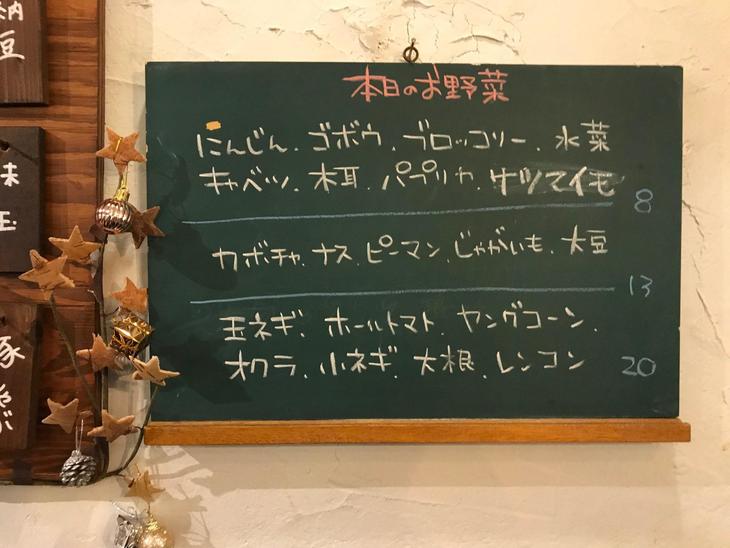 納
豆
味
玉
豚
しゃぶ
本日のお野菜
にんじん、ゴボウ、ブロッコリー、水菜
キャベツ、木耳、パプリカ、サツマイモ
8
カボチャ、ナス、ピーマン、じゃがいも、大豆
13
玉ネギ、ホールトマト、ヤングコーン、
オクラ、小ネギ、大根、レンコン
20